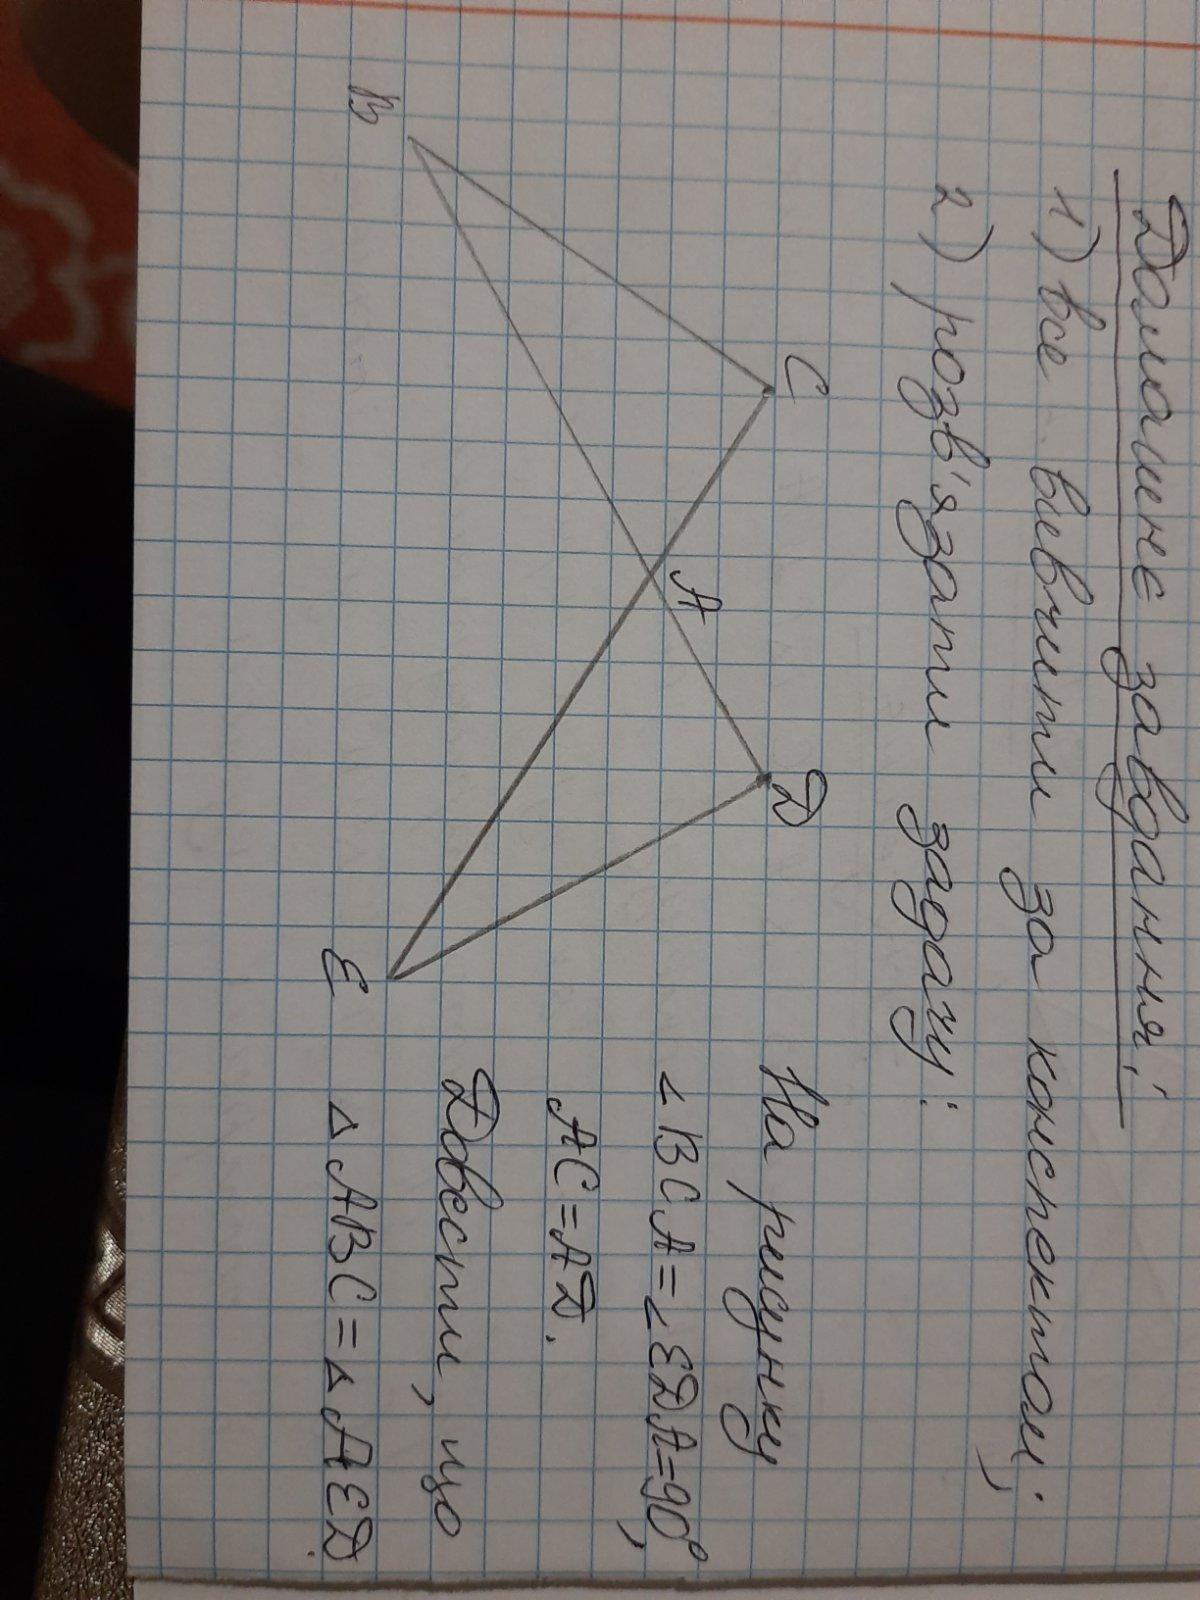 Домашнє завдання:
1) все вивчити за конспектом;
2) розв'язати задачу:
C
D
A
B
E
На рисунку
∠BCA=∠EDA=90°,
AC=AD.
Довести, що
△ABC=△AED.